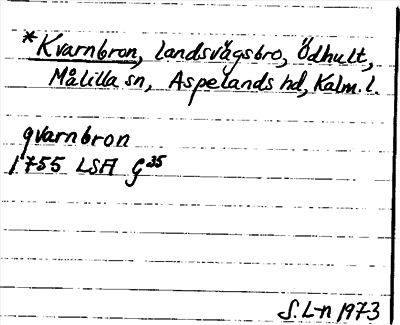 *Kvarnbron, landsvägsbro, Ödhult,
Målilla sn, Aspelands hd, Kalm. l.
qvarnbron
1755 LSA G35
S. L-n 1973